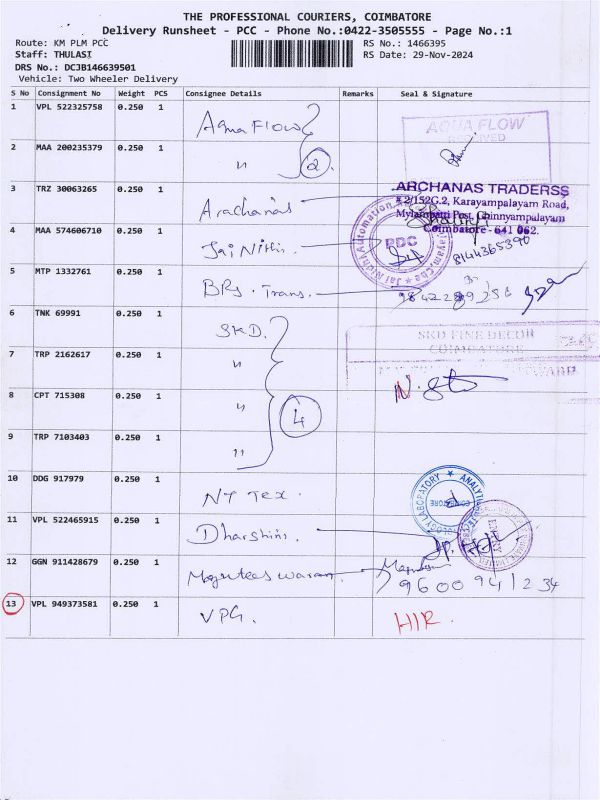 THE PROFESSIONAL COURIERS, COIMBATORE
Delivery Runsheet - PCC - Phone No.:0422-3505555 - Page No.:1
Route: KM PLM PCC
RS No.: 1466395
Staff: THULASI
RS Date: 29-Nov-2024
DRS No.: DCJB146639501
Vehicle: Two Wheeler Delivery
S No Consignment No Weight PCS Consignee Details Remarks Seal & Signature
1 VPL 522325758 0.250 1 Aqua Flow AQUA FLOW
2 MAA 200235379 0.250 1 " 2
3 TRZ 30063265 0.250 1 Arachanas ARCHANAS TRADERSS
# 2/152G.2, Karayampalayam Road,
Mylampatti Post, Chinnyampalayam
Coimbatore - 641 062.
4 MAA 574606710 0.250 1 Jai Nithi. PDC 8144365390
5 MTP 1332761 0.250 1 BRS. Trans.
6 TNK 69991 0.250 1 SKD. SKD FINE DECOR
COIMBATORE
7 TRP 2162617 0.250 1 "
8 CPT 715308 0.250 1 " 4
9 TRP 7103403 0.250 1 "
10 DDG 917979 0.250 1 NT Tex.
11 VPL 522465915 0.250 1 Dharshini
12 GGN 911428679 0.250 1 9600941234
13 VPL 949373581 0.250 1 VPG. HIR.